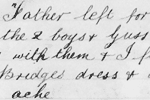 "Father left for
the 2 boys & Guss
with them & I f
Bridges dress &
ache